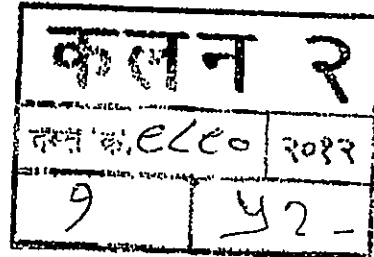 कलन २
दस्त क्र. ९८९० २०१२
१ ५२-